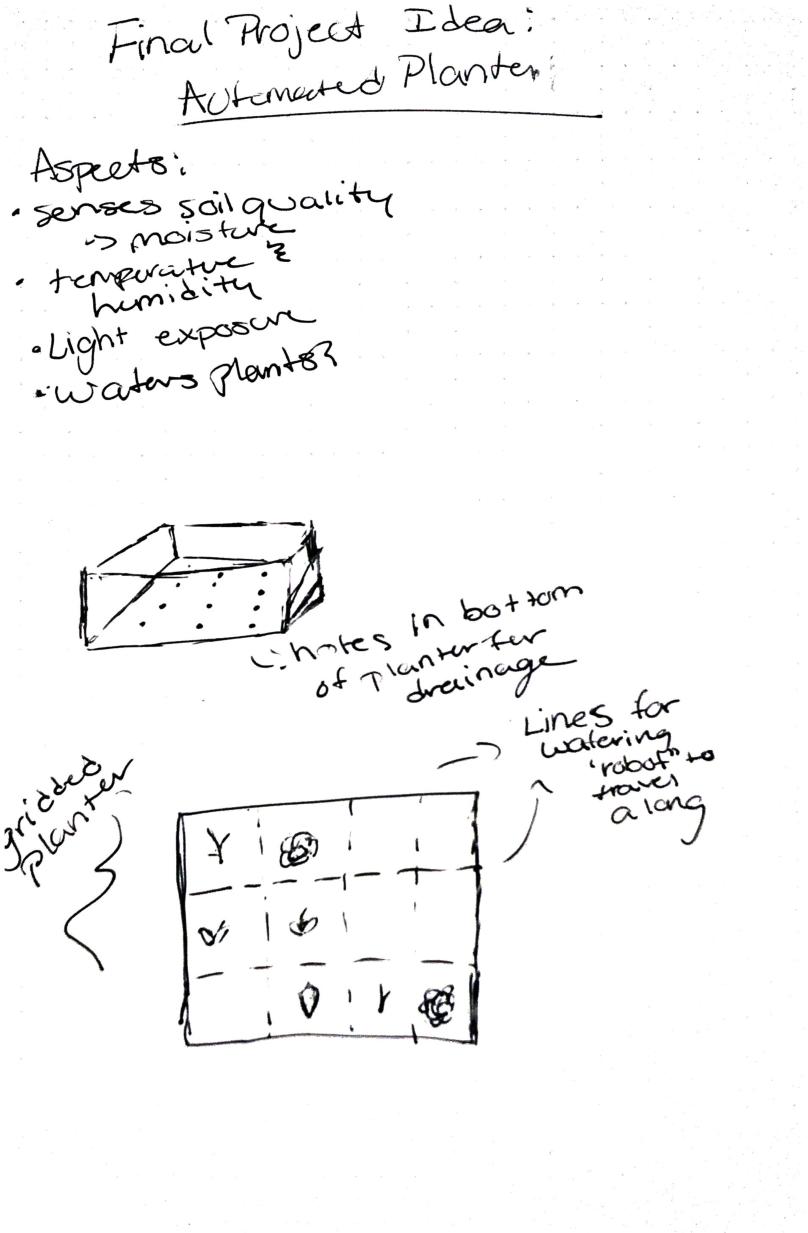 Final Project Idea:
Automated Planter:
Aspects:
• senses soil quality
↳ moisture
• temperature &
humidity
• Light exposure
• waters plants?
↳ holes in bottom
of planter for
drainage
Lines for
watering
"robot" to
travel
along
gridded
planter